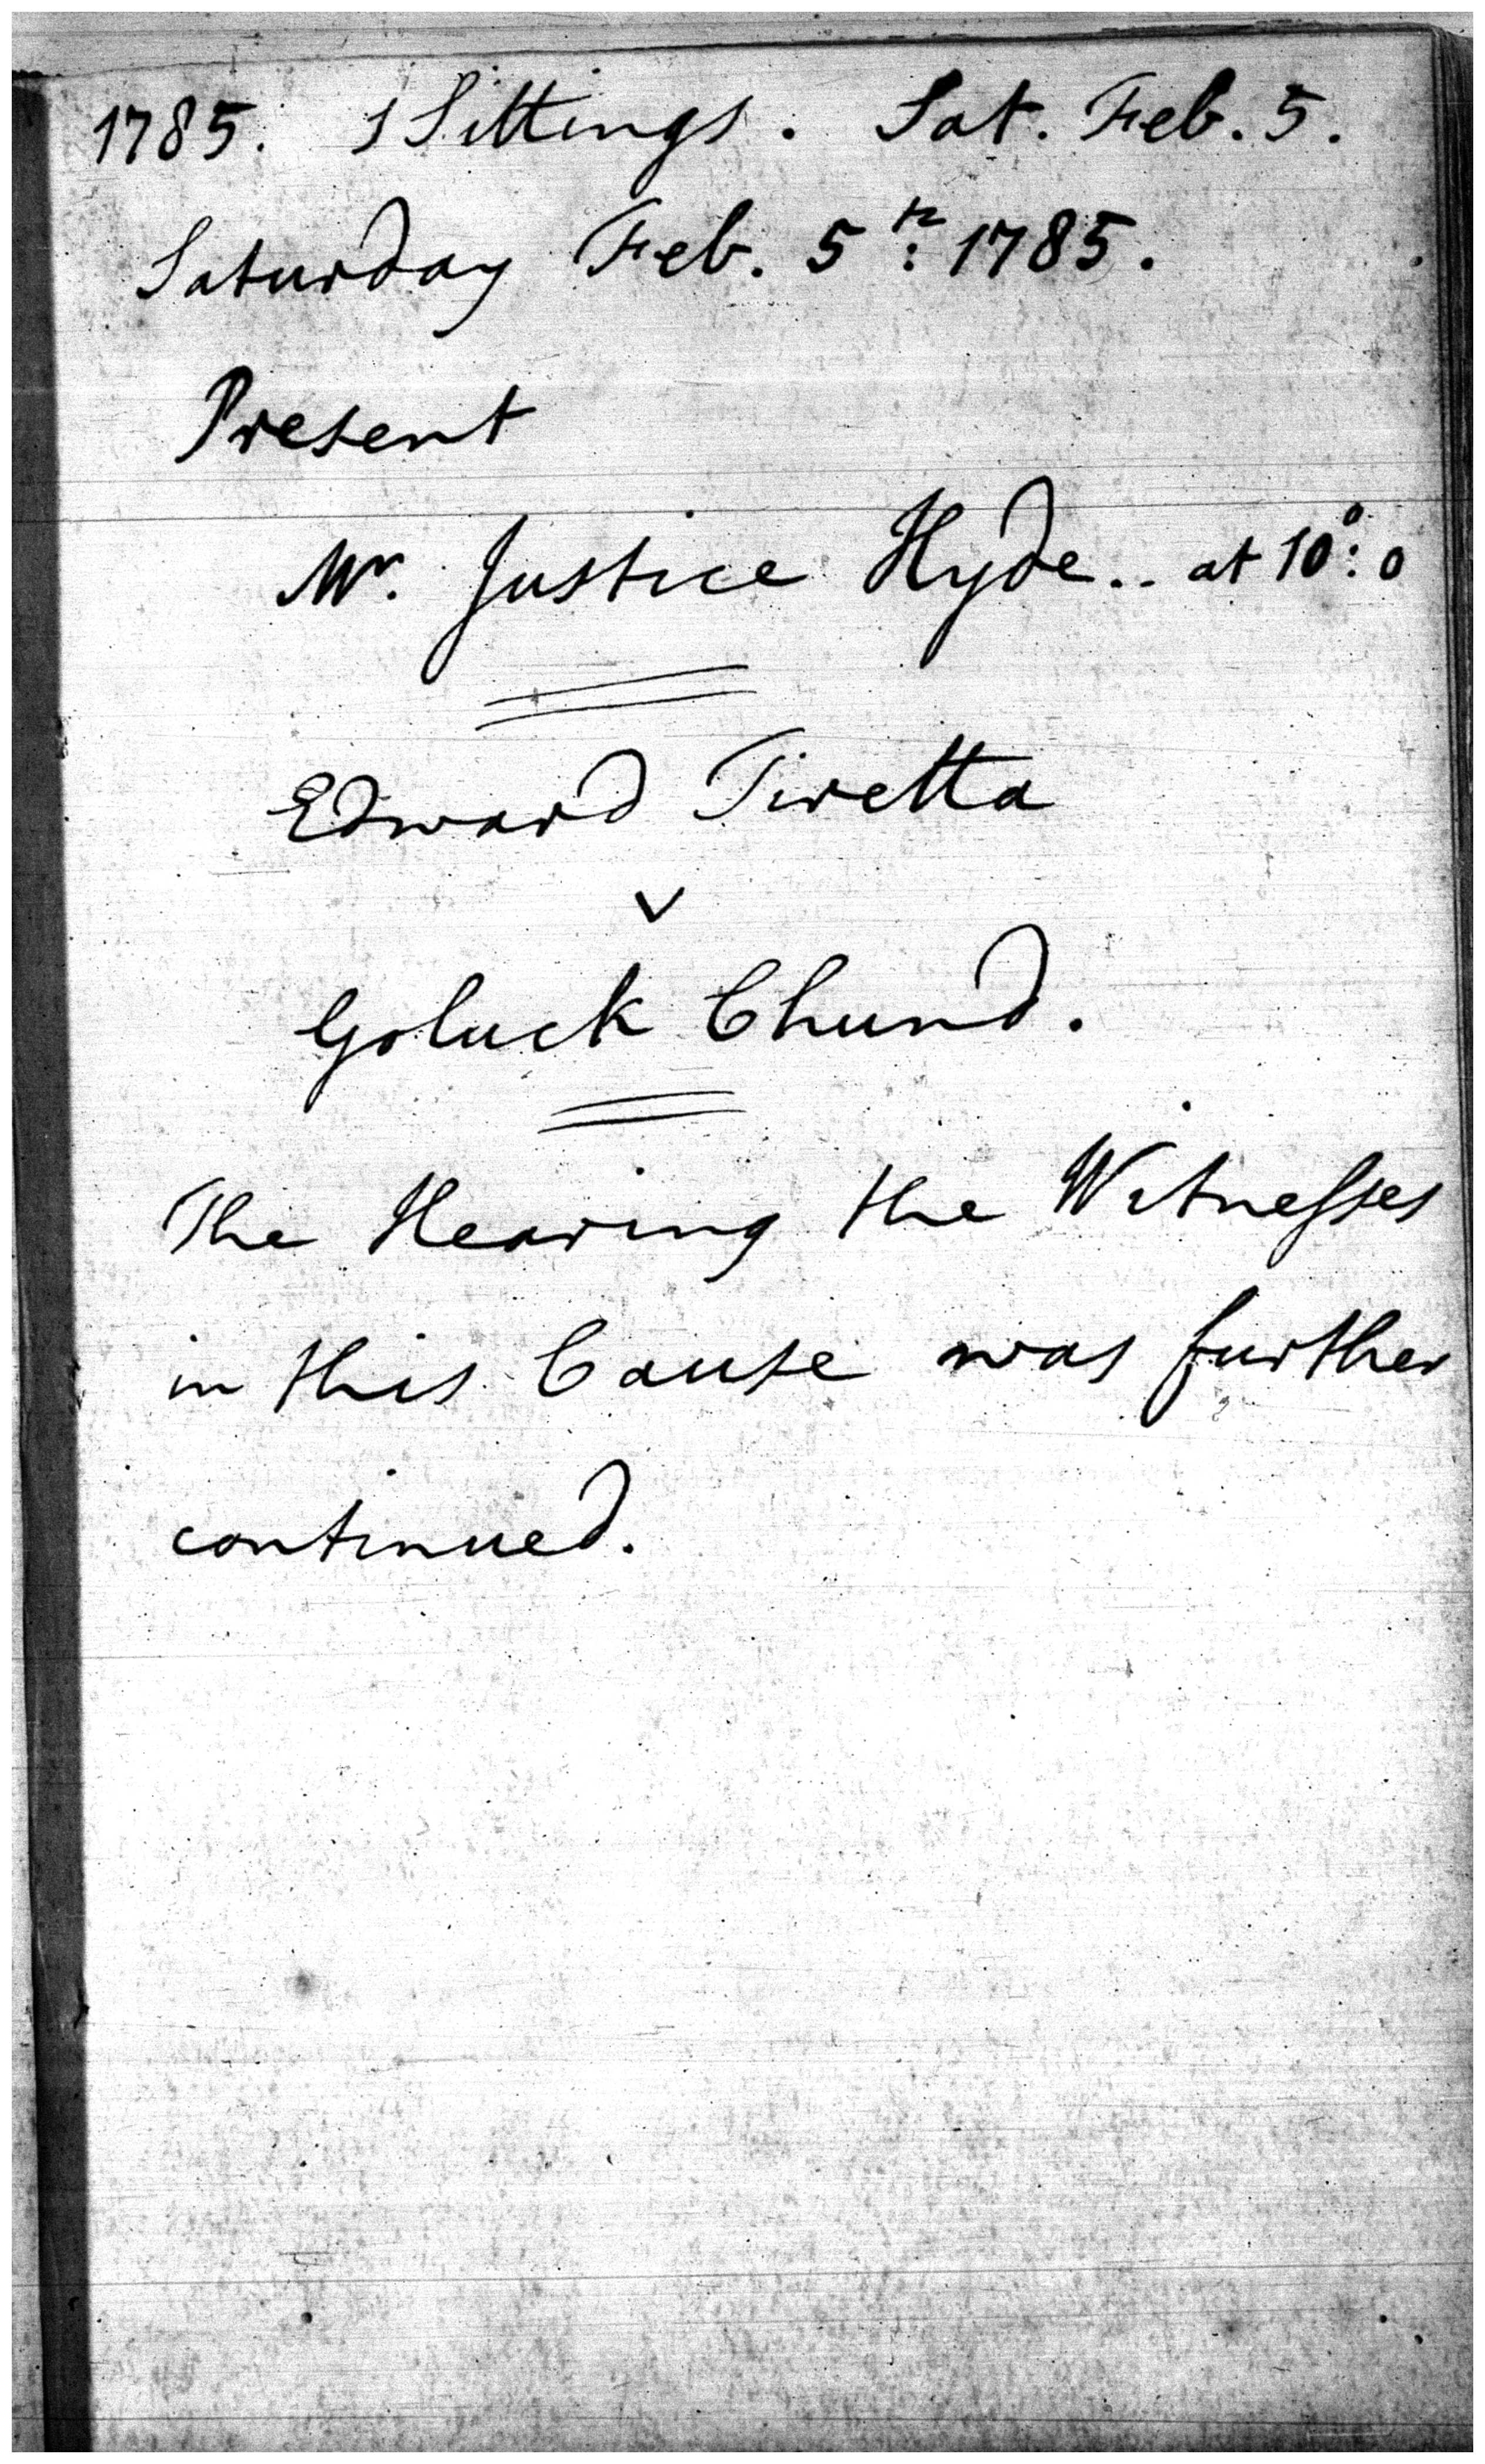 1785. 1 Sittings. Sat. Feb. 5.
Saturday Feb. 5th: 1785.
Present
Mr. Justice Hyde.. at 10°: 0
Edward Tiretta
v
Goluck Chund.
The Hearing the Witneſses
in this Cause was further
continued.